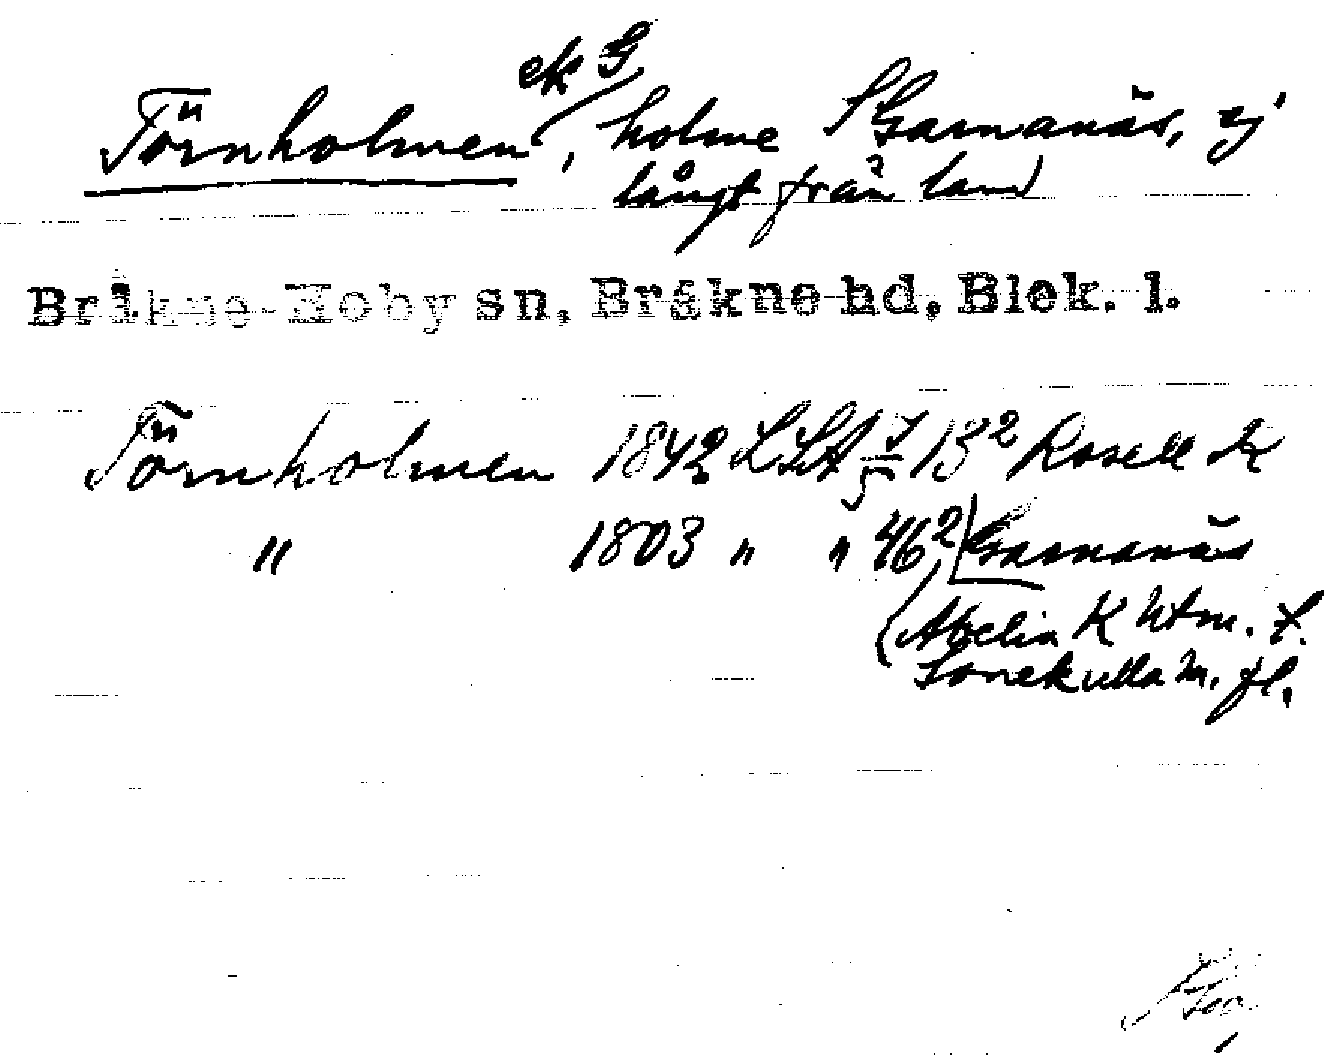 ek G
Törnholmen, holme S Garnanäs, ej
långt från land
Bräkne-Hoby sn, Bräkne hd, Blek. l.
Törnholmen 1842 LSA 7/5 13² Rosell k
" 1803 " " 46² Garnanäs
(Abelin K htm. t.
Sonekulla m. fl.